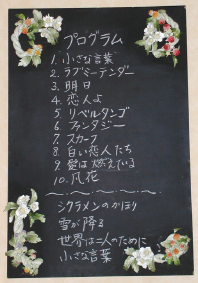 プログラム
1. 小さな言葉
2. ラブミーテンダー
3. 明日
4. 恋人よ
5. リベルタンゴ
6. ファンタジー
7. スカーフ
8. 白い恋人たち
9. 愛は燃えている
10. 風花
シクラメンのかほり
雪が降る
世界は二人のために
小さな言葉